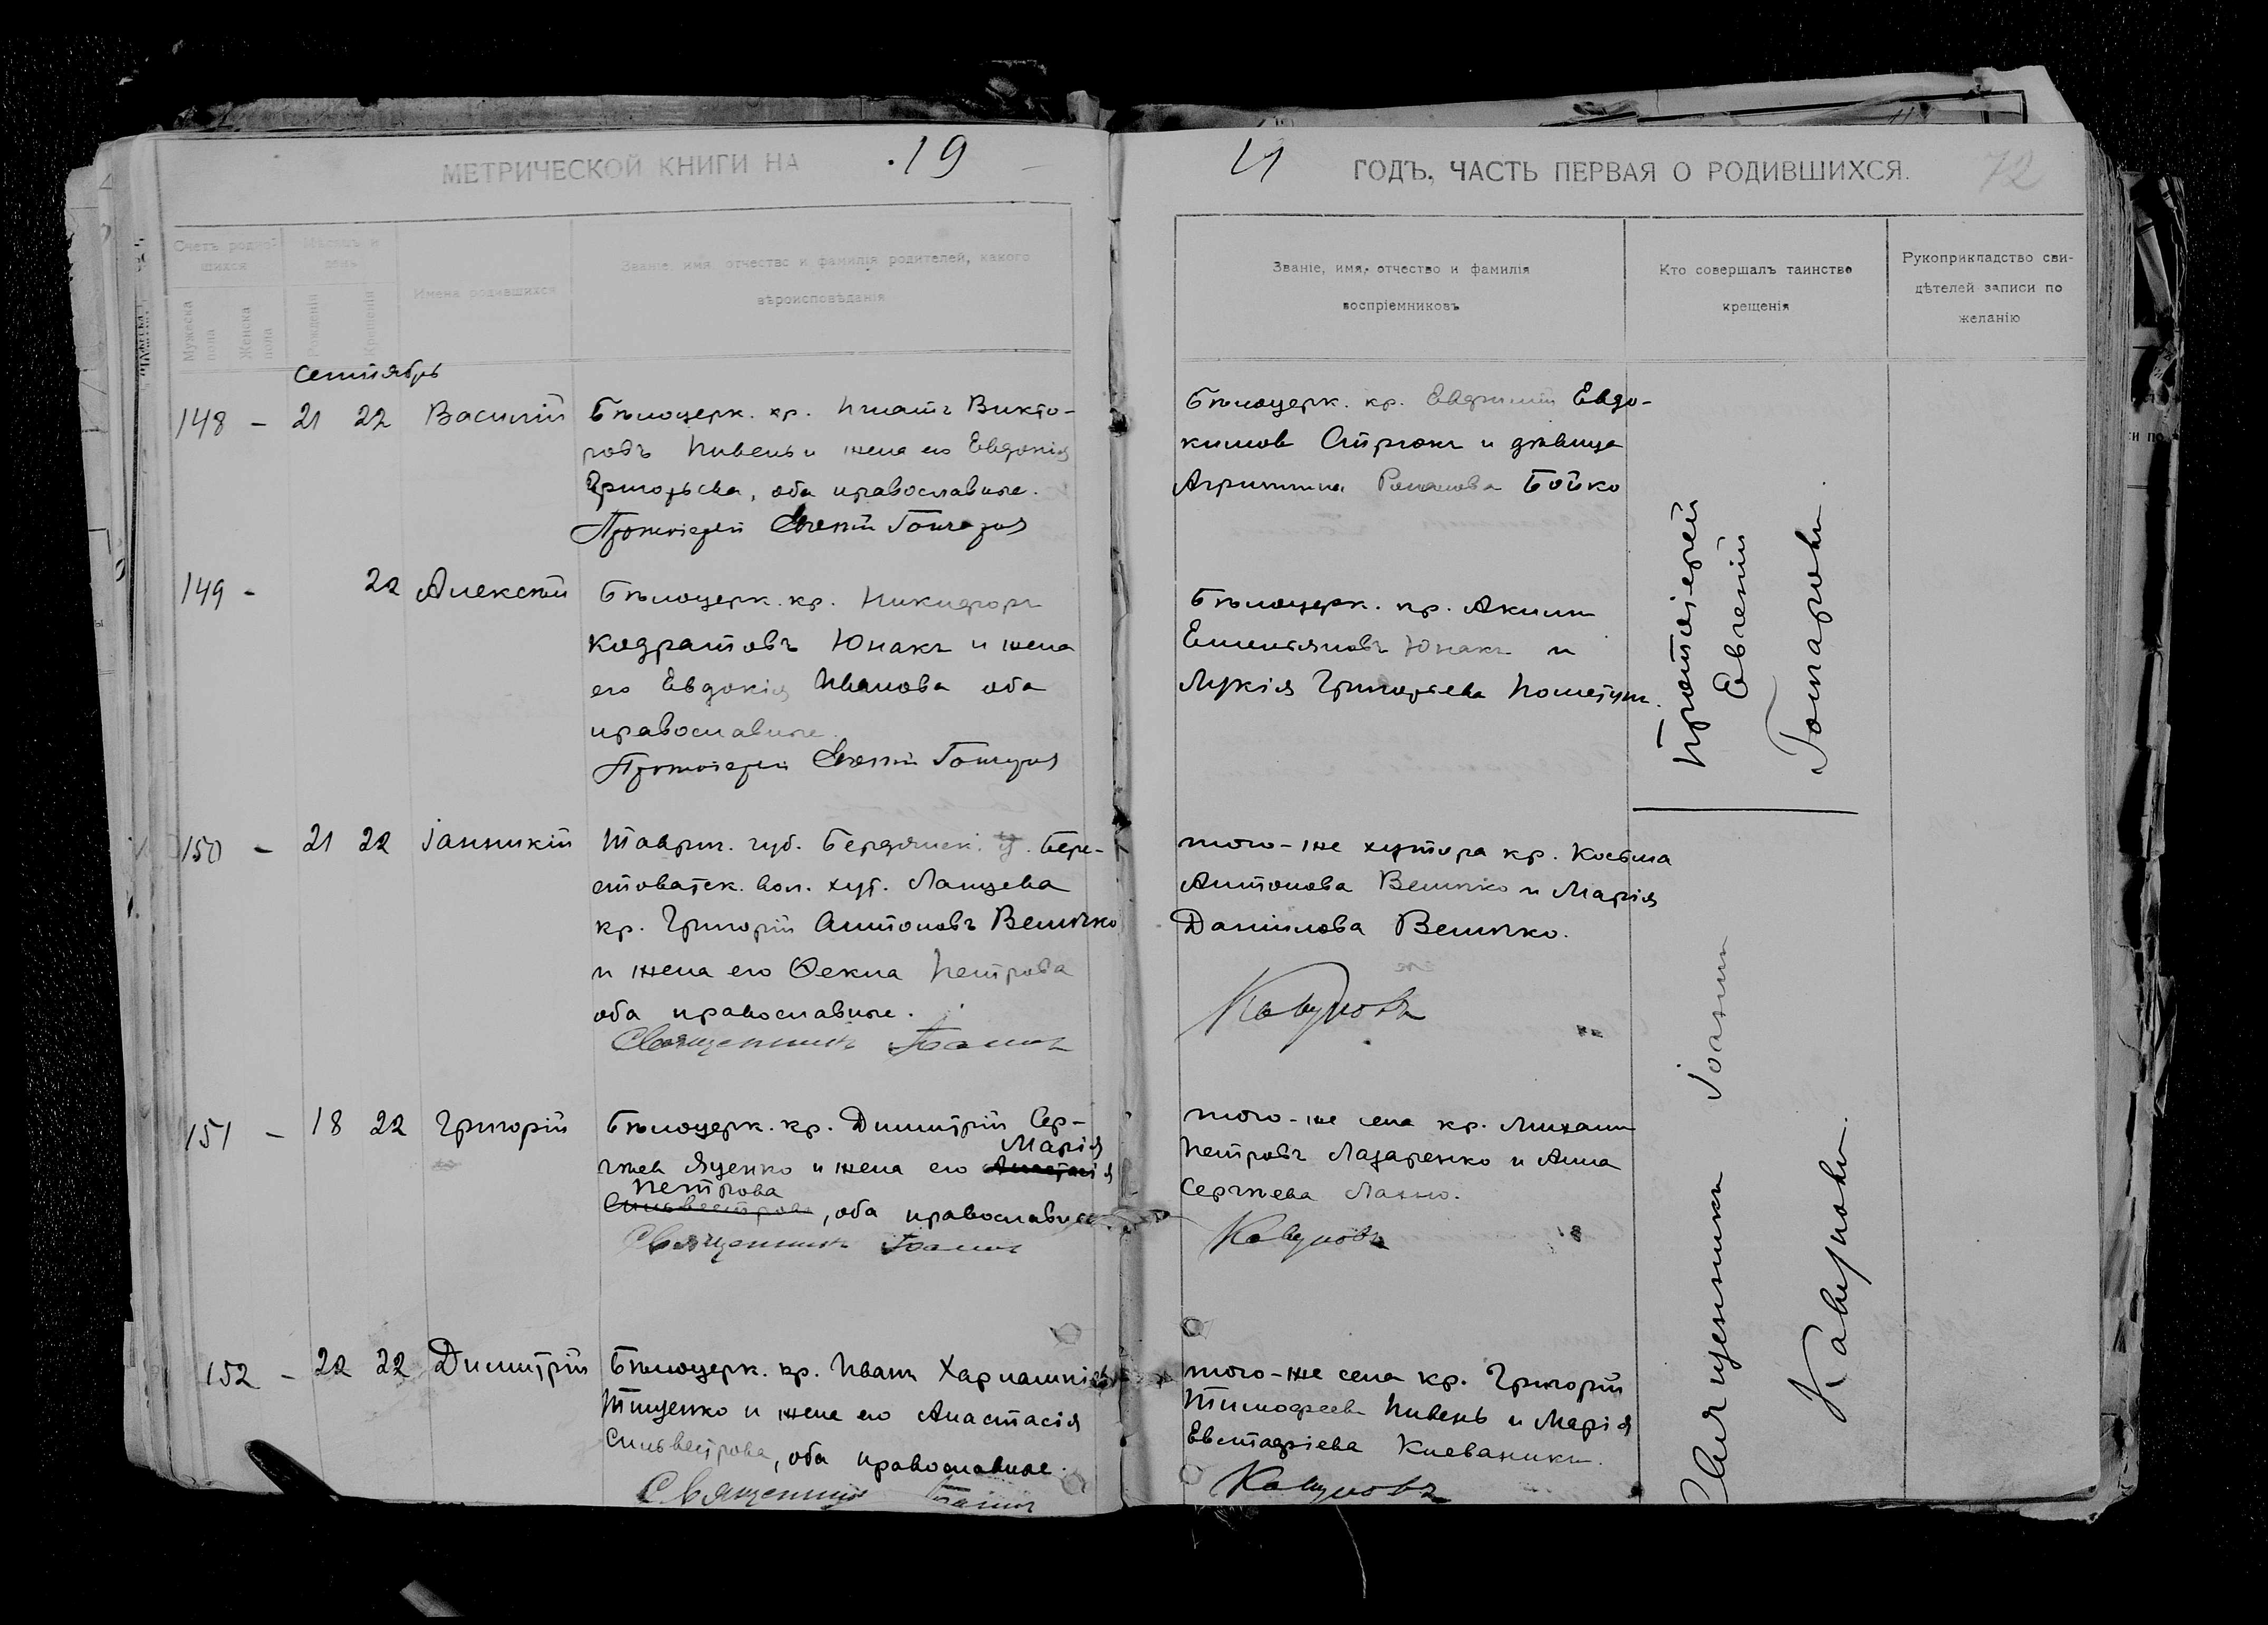 МЕТРИЧЕСКОЙ КНИГИ НА 19
Счетъ родив-
шихся
Мужеска пола
Женска пола
Мѣсяцъ и
день
Рожденія
Крещенія
Имена родившихся
Званіе, имя, отчество и фамилія родителей, какого
вѣроисповѣданія
Сентябрь
148 - 21 22 Василій
Бѣлоцерк. кр. Игнатъ Викто-
ровъ Пивень и жена его Евдокія
Григорьева, оба православные.
Протоіерей Евгеній
149 - 22 Алексѣй
Бѣлоцерк. кр. Никифоръ
Кодратовъ Юнакъ и жена
его Евдокія Иванова оба
православные.
Протоіерей Евгеній
150 - 21 22 Іанникій
Таврич. губ. Бердянск. у. Бере-
стоватск. вол. хут. Ланцева
кр. Григорій Антоновъ Величко
и жена его Ѳекла Петрова
оба православные.
Священникъ Іоаннъ
151 - 18 22 Григорій
Бѣлоцерк. кр. Димитрій Сер-
Марія
гѣев Яценко и жена его Анастасія
Петрова
Сильвестрова, оба православные.
Священникъ Іоаннъ
152 - 22 22 Димитрій
Бѣлоцерк. кр. Иванъ Харлампіевъ
Тищенко и жена его Анастасія
Сильвестрова, оба православные.
Священникъ Іоаннъ
21 ГОДЪ, ЧАСТЬ ПЕРВАЯ О РОДИВШИХСЯ. 72
Званіе, имя, отчество и фамилія
воспріемниковъ
Кто совершалъ таинство
крещенія
Рукоприкладство сви-
дѣтелей записи по
желанію
Бѣлоцерк. кр. Евфимій Евдо-
кимов и дѣвица
Агриппина Романова Бойко
Бѣлоцерк. кр. Акимъ
Емельяновъ Юнакъ и
Лукія Григорьева
того-же хутора кр. Косьма
Антонова Величко и Марія
Даніилова Величко.
Кавуновъ
того-же села кр. Михаилъ
Петровъ Лазаренко и Анна
Сергѣева
Кавуновъ
того-же села кр. Григорій
Тимофеевъ Пивень и Марія
Евстафіева
Кавуновъ
Протоіерей
Евгеній
Священникъ Іоаннъ
Кавуновъ.